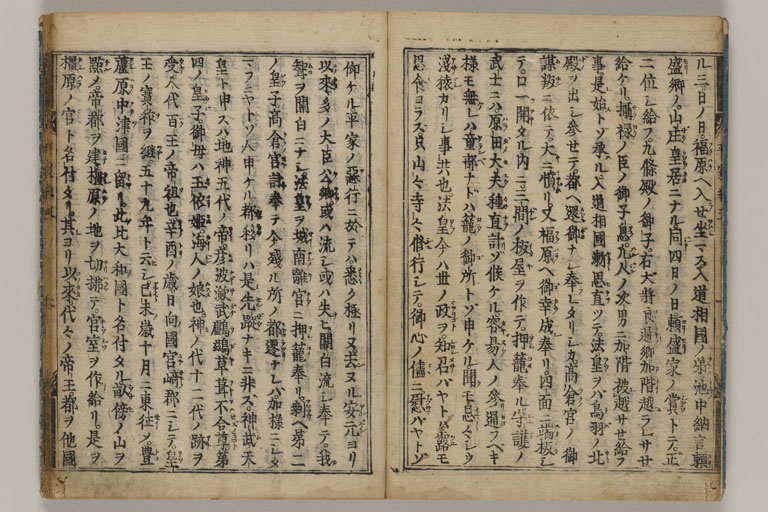 ル三日ノ日福原ヘ入セ坐マス入道相國ノ弟池中納言頼
盛卿ノ山庄皇居ニナル同四日ノ日頼盛家ノ賞トテ正
二位シ給フ九條殿ノ御子右大将良通卿加階越ラレサセ
給ケリ攝禄ノ臣ノ御子息凡人ノ次男ニ加階被越サセ給フ
事是始トソ承ル入道相國漸思直ツテ法皇ヲハ鳥羽ノ北
殿ヲ出シ参セテ都ヘ還御ナシ奉レタリシカ高倉宮ノ御
謀叛ニ依テ大ニ憤リ又福原ヘ御幸成奉リ四面ニ端板シ
テ口一開タル内ニ三間ノ板屋ヲ作テ押籠奉ル守護ノ
武士ニハ原田大夫種直計ソ候ケル容易人ノ参通フヘキ
様モ無レハ童部ナトハ籠ノ御所トソ申ケル聞モ忌々シウ
浅猿カリシ事共也法皇今ハ世ノ政ヲ知召バヤト露モ
思食ヨラス只山々寺々修行シテ御心ノ儘ニ慰バヤトソ
仰ケル平家ノ惡行ニ於テハ悉ク極リヌ去ヌル安元ヨリ
以來多ノ大臣公卿或ハ流シ或ハ失ヒ關白流シ奉テ我
聟ヲ關白ニナシ法皇ヲ城南離宮ニ押籠奉リ剰ヘ第二
ノ皇子高倉宮討奉テ今殘ル所ノ都遷ナレバ加様ニシ
マフニヤトソ人申ケル都移リハ是先蹤ナキニ非ス神武天
皇ト申スハ地神五代ノ帝彦波瀲武鸕鷀草葺不合尊第
四ノ皇子御母ハ玉依姫海人ノ娘也神ノ代十二代ノ跡ヲ
受人代百王ノ帝祖也辛酉ノ歳日向國宮崎郡ニシテ皇
王ノ寶祚ヲ継五十九年ト云シ己未歳十月ニ東征シ豊
蘆原中津國ニ留リ此比大和國ト名付タル畝傍ノ山ヲ
點ノ帝都ヲ建橿原ノ地ヲ切掃テ宮室ヲ作給リ是ヲ
橿原ノ宮ト名付タリ其ヨリ以來代々ノ帝王都ヲ他國